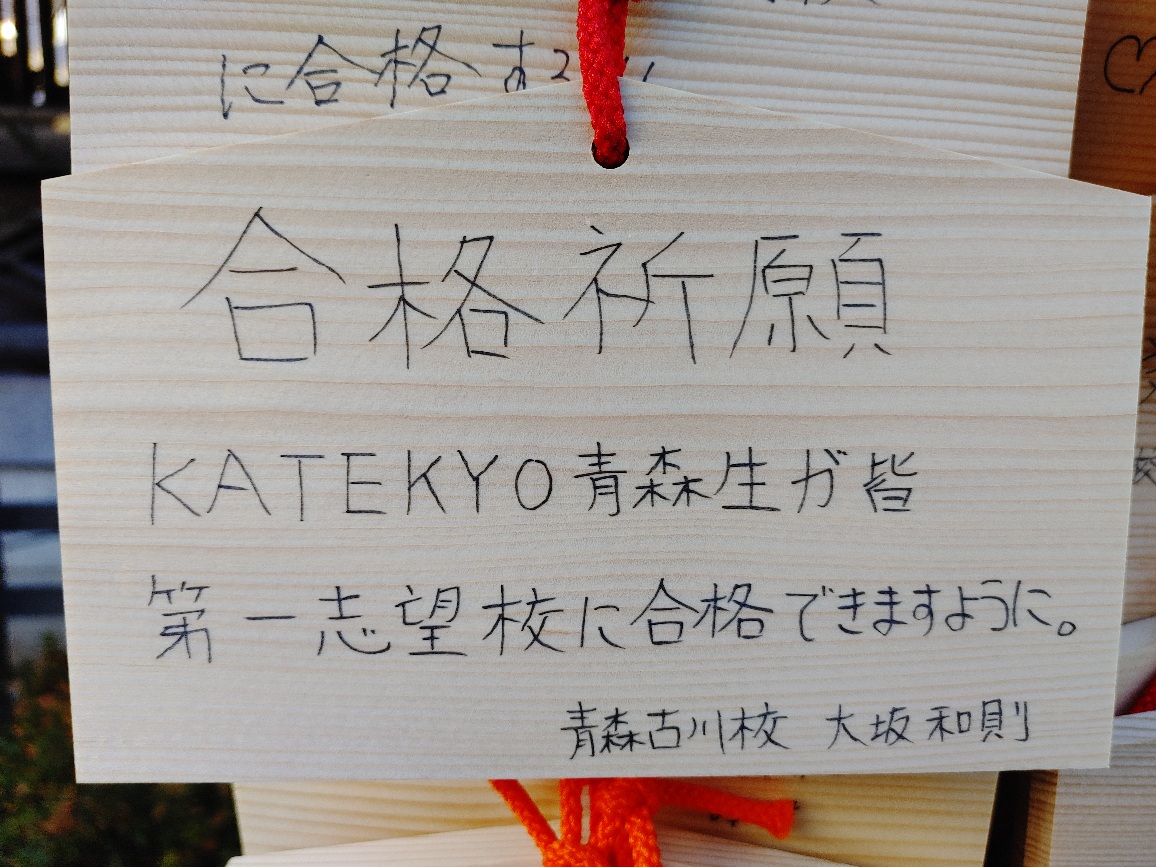 に合格す
合格祈願
KATEKYO青森生が皆
第一志望校に合格できますように。
青森古川校 大坂和則